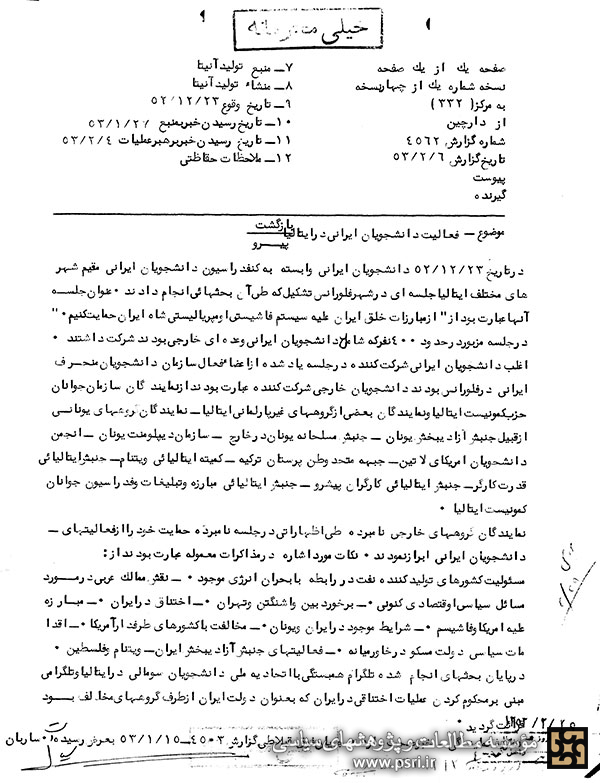 خیلی محرمانه
صفحه یك از یك صفحه
نسخه شماره یك از چهارنسخه
به مرکز( ۳۳۲ )
از دارچین
شماره گزارش ۴۵۶۲
تاریخ گزارش ۵۳/۲/۶
پیوست
گیرنده
۷ـ منبع تولیدآنیتا
۸ـ منشاء تولیدآنیتا
۹ـ تاریخ وقوع ۵۲/۱۲/۲۳
۱۰ـ تاریخ رسیدن خبربمنبع ۵۳/۱/۲۷
۱۱ـ تاریخ رسیدن خبربرهبرعملیات ۵۳/۲/۴
۱۲ـ ملاحظات حفاظتی
بازگشت
موضوع ـ فعالیت دانشجویان ایرانی درایتالیا
پیرو
درتاریخ ۵۲/۱۲/۲۳ دانشجویان ایرانی وابسته به کنفدراسیون دانشجویان ایرانی مقیم شهر
های مختلف ایتالیا جلسه ای درشهرفلورانس تشکیل که طی آن بحثهائی انجام دادند ۰ عنوان جلسه
آنها عبارت بود از " از مبارزات خلق ایران علیه سیستم فاشیستی امپریالیستی شاه ایران حمایت کنیم۰ "
درجلسه مزبور درحدود ۴۰۰ نفر که شامل دانشجویان ایرانی وعده ای خارجی بودند شرکت داشتند ۰
اغلب دانشجویان ایرانی شرکت کننده درجلسه یاد شده ازاعضا فعال سازمان دانشجویان منحرف
ایرانی درفلورانس بودند دانشجویان خارجی شرکت کننده عبارت بودند ازنمایندگان سازمان جوانان
حزب کمونیست ایتالیا ونمایندگان بعضی ازگروههای غیرپارلمانی ایتالیا ـ نمایندگان گروههای یونانی
ازقبیل جنبش آزادیبخش یونان ـ جنبش مسلحانه یونان درخارج ـ سازمان دیپلومنت یونان ـ انجمن
دانشجویان امریکای لاتین ـ جبهه متحد وطن پرستان ترکیه ـ کمیته ایتالیائی ویتنام ـ جنبش ایتالیائی
قدرت کارگر ـ جنبش ایتالیائی کارگران پیشرو ـ جنبش ایتالیائی مبارزه وتبلیغات وفدراسیون جوانان
کمونیست ایتالیا ۰
نمایندگان گروههای خارجی نامبرده طی اظهاراتی درجلسه نامبرده حمایت خود را ازفعالیتهای ـ
دانشجویان ایرانی ابراز نمودند ۰ نکات مورد اشاره درمذاکرات معموله عبارت بودند از :
مسئولیت کشورهای تولید کننده نفت در رابطه با بحران انرژی موجود ۰ ـ نقش ممالك عربی درمورد
مسائل سیاسی اوقتصادی کنونی ۰ ـ برخورد بین واشنگتن وتهران ۰ ـ اختناق درایران ۰ ـ مبارزه
علیه امریکا وفاشیسم ۰ ـ شرایط موجود درایران ویونان ۰ ـ مخالفت باکشورهای طرفدار آمریکا ۰ ـ اقدا
مات سیاسی دولت مسکو درخاورمیانه ۰ ـ فعالیتهای جنبش آزادیبخش ایران ـ ویتنام وفلسطین ۰
درپایان بحثهای انجام شده تلگرام همبستگی با اتحادیه ملی دانشجویان سومالی درایتالیا وتلگرامی
مبنی برمحکوم کردن عملیات اختناقی درایران که بعنوان دولت ایران ازطرف گروههای مخالف بود
قرائت گردید ۰
قبلا طی گزارش ۴۵۰۳ ـ ۵۳/۱/۱۵ بعرض رسیده ۰ ساربان
مؤسسه مطالعات و پژوهشهای سیاسی
www.psri.ir